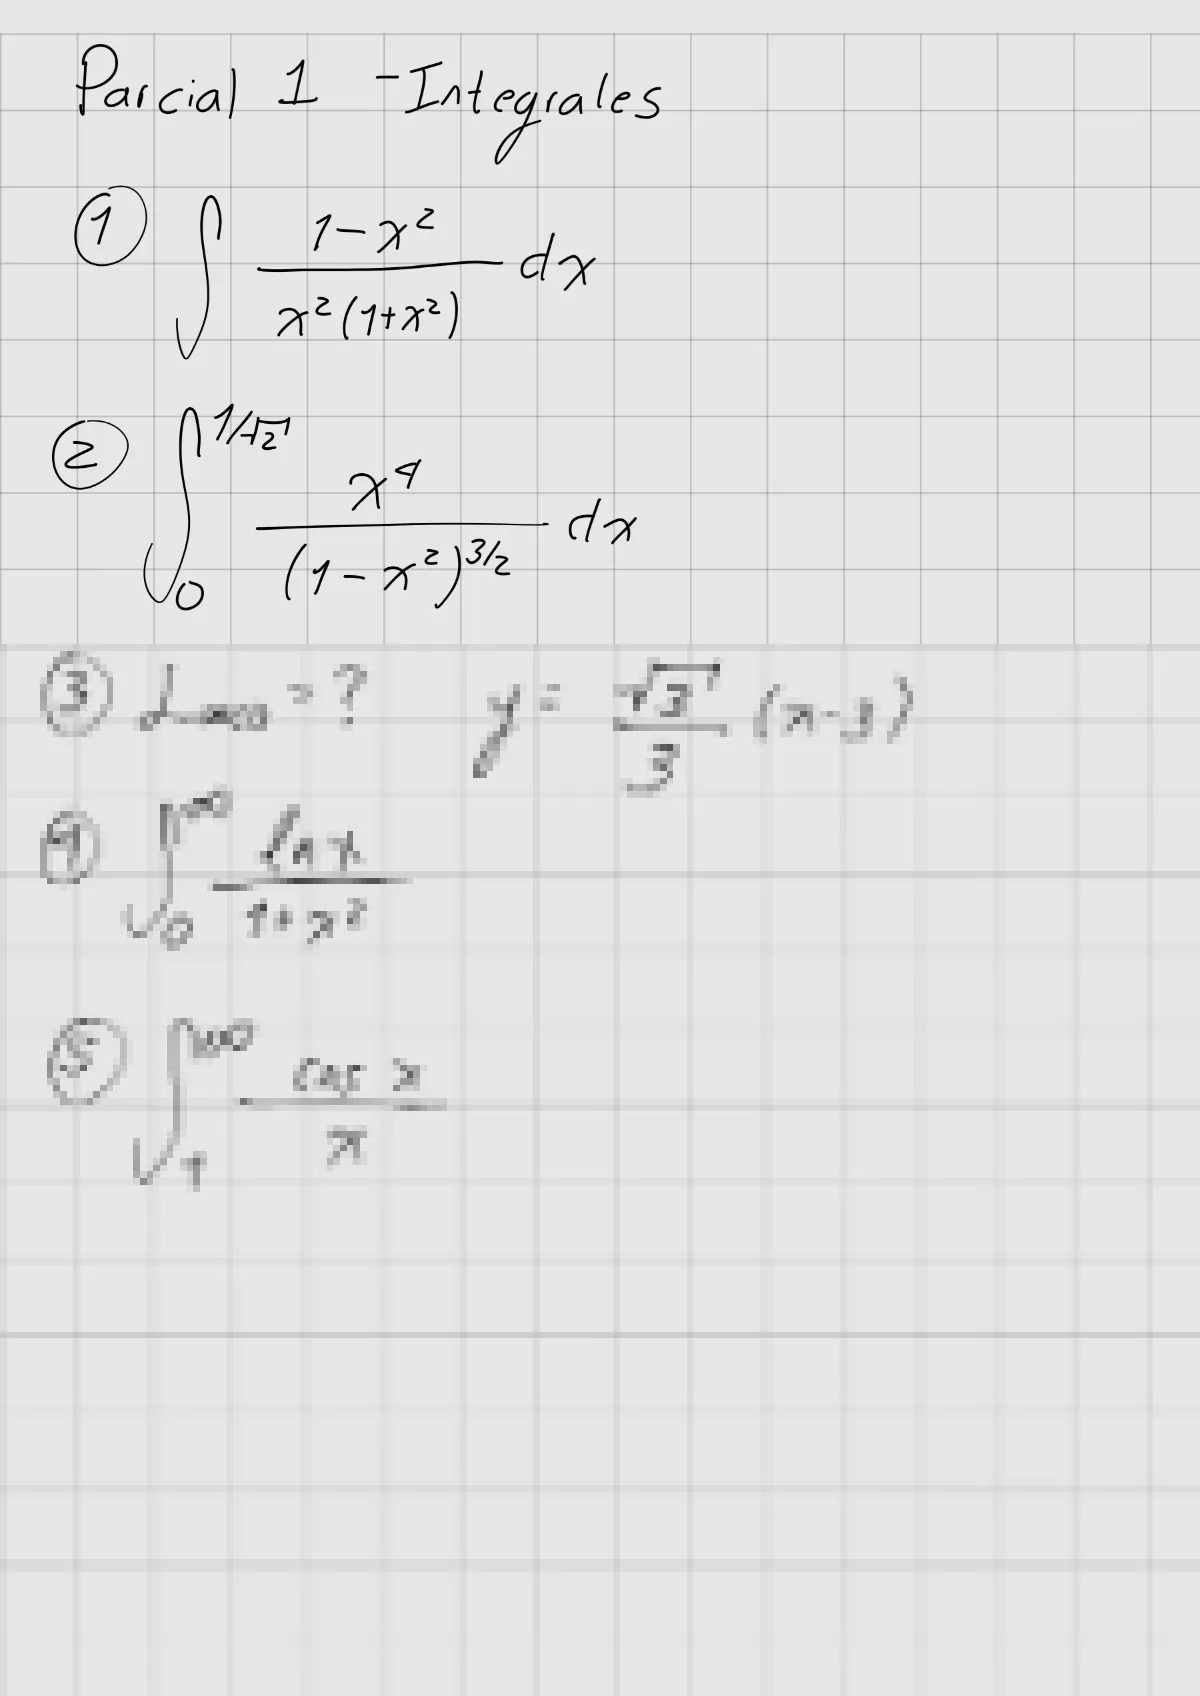 Parcial 1 - Integrales
① ∫ (1-x²)/(x²(1+x²)) dx
② ∫₀^(1/√2) x⁴/(1-x²)^(3/2) dx
③ = ? y = √3/3 (x-3)
④ ∫₀^∞ ln x/(1+x²)
⑤ ∫₁^∞ cos x/x